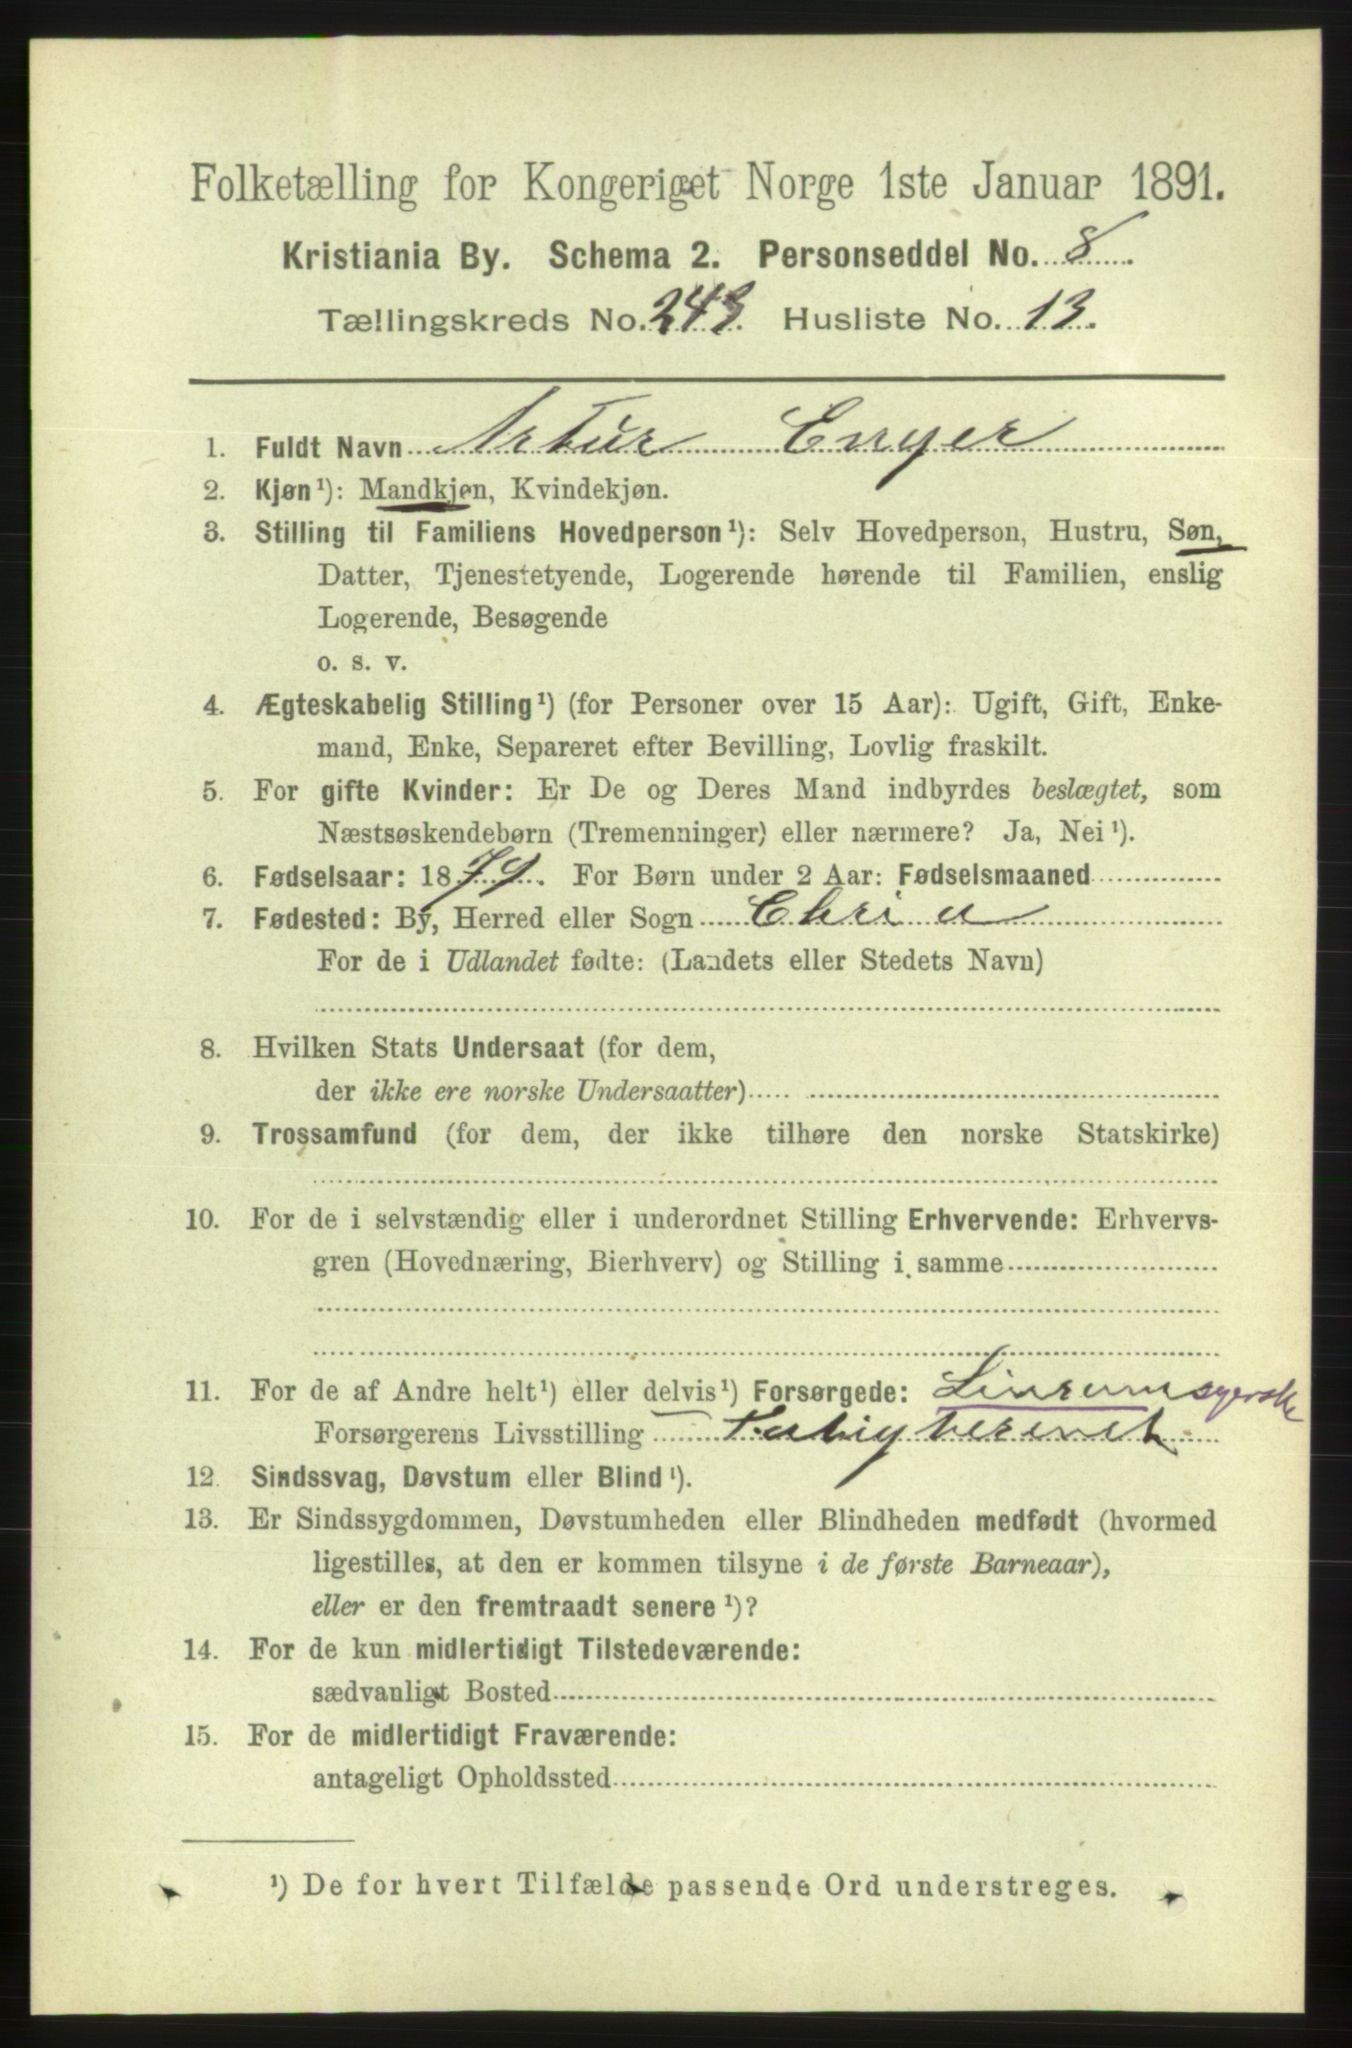 Folketælling for Kongeriget Norge 1ste Januar 1891.
Kristiania By. Schema 2. Personseddel No. 8.
Tællingskreds No. 243. Husliste No. 13.
1. Fuldt Navn Artur Enger
2. Kjøn¹): Mandkjøn, Kvindekjøn.
3. Stilling til Familiens Hovedperson¹): Selv Hovedperson, Hustru, Søn,
Datter, Tjenestetyende, Logerende hørende til Familien, enslig
Logerende, Besøgende
o. s. v.
4. Ægteskabelig Stilling¹) (for Personer over 15 Aar): Ugift, Gift, Enke-
mand, Enke, Separeret efter Bevilling, Lovlig fraskilt.
5. For gifte Kvinder: Er De og Deres Mand indbyrdes beslægtet, som
Næstsøskendebørn (Tremenninger) eller nærmere? Ja, Nei¹).
6. Fødselsaar: 1879. For Børn under 2 Aar: Fødselsmaaned
7. Fødested: By, Herred eller Sogn Chria
For de i Udlandet fødte: (Landets eller Stedets Navn)
8. Hvilken Stats Undersaat (for dem,
der ikke ere norske Undersaatter)
9. Trossamfund (for dem, der ikke tilhøre den norske Statskirke)
10. For de i selvstændig eller i underordnet Stilling Erhvervende: Erhvervs-
gren (Hovednæring, Bierhverv) og Stilling i samme
11. For de af Andre helt¹) eller delvis¹) Forsørgede:
Forsørgerens Livsstilling
12. Sindssvag, Døvstum eller Blind¹).
13. Er Sindssygdommen, Døvstumheden eller Blindheden medfødt (hvormed
ligestilles, at den er kommen tilsyne i de første Barneaar),
eller er den fremtraadt senere¹)?
14. For de kun midlertidigt Tilstedeværende:
sædvanligt Bosted
15. For de midlertidigt Fraværende:
antageligt Opholdssted
¹) De for hvert Tilfælde passende Ord understreges.